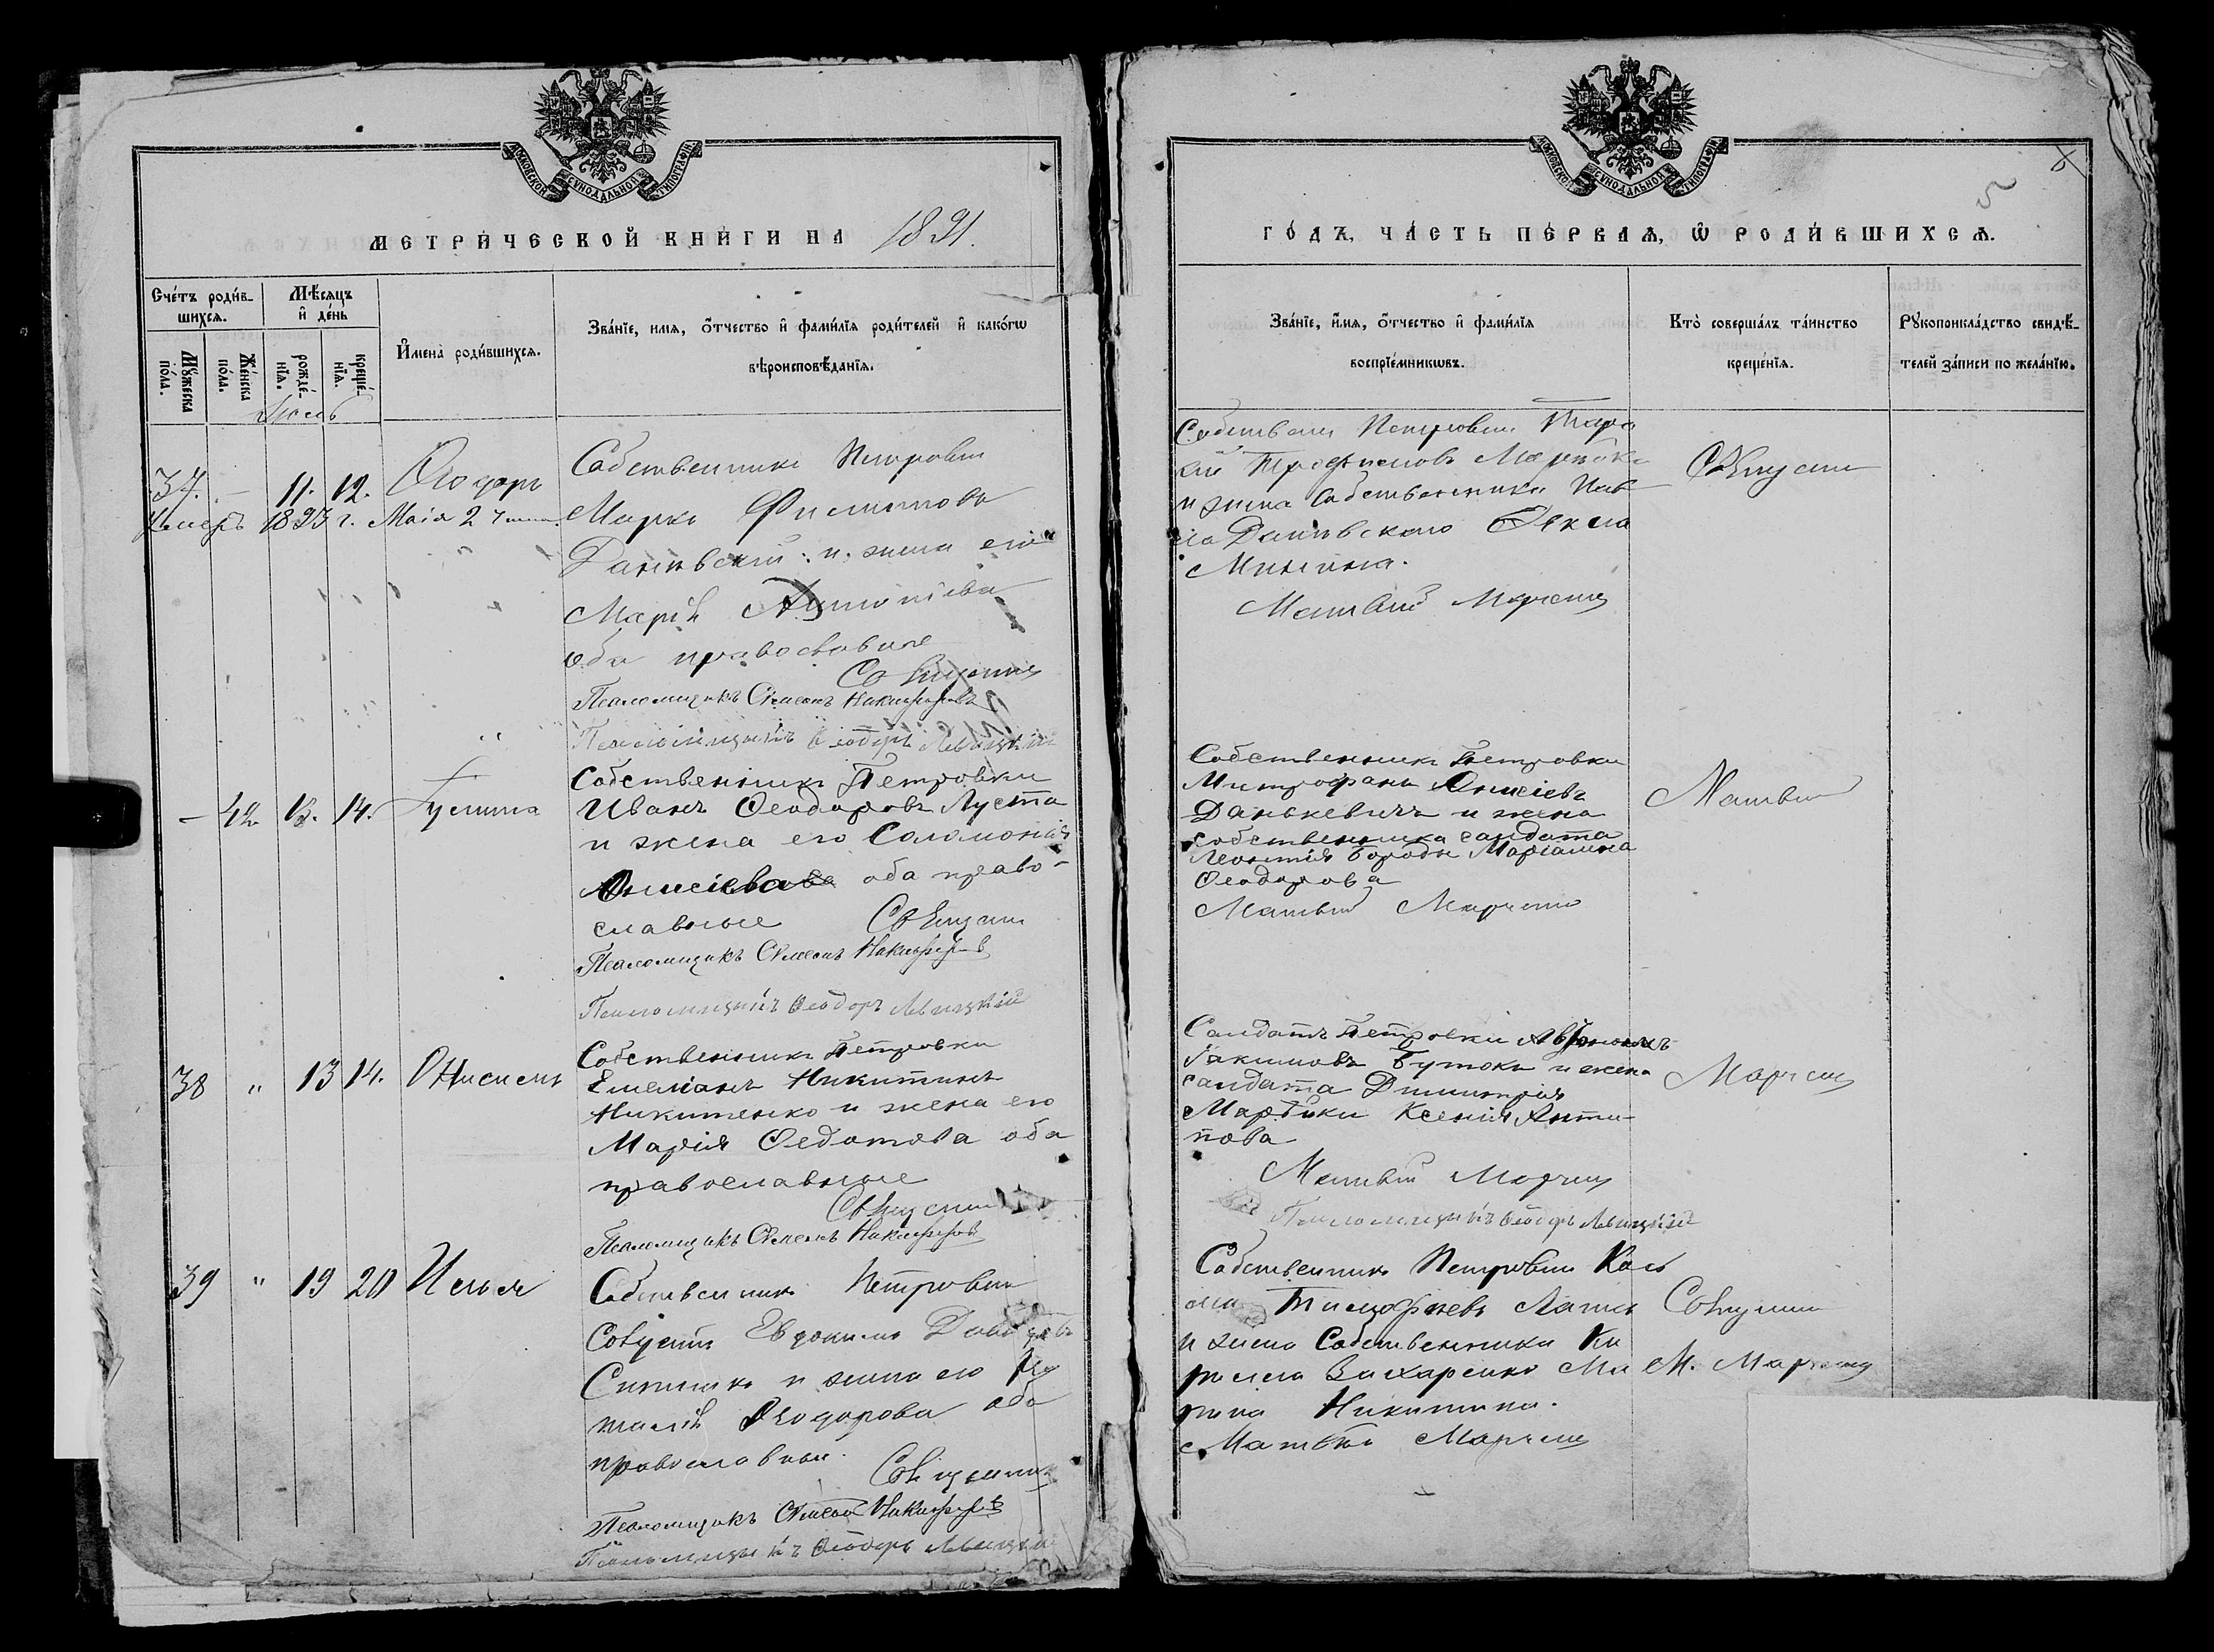 МОСКОВСКОЙ СѴНОДАЛЬНОЙ ТИПОГРАФІИ
МЕТРИЧЕСКОЙ КНИГИ НА 1891.
Счетъ родив-
шихся.
Мѣсяцъ
и день
Мужеска
пола.
Женска
пола.
рожде-
нія.
креще-
нія.
Имена родившихся.
Званіе, имя, отчество и фамилія родителей и какогѡ
вѣроисповѣданія.
37. - 11. 12. Ѳеодоръ
Умеръ 1893 г. Маія 2
Собственникъ Петровки
Марко Филиповъ
и жена его
Марія Антоніева
оба православные
Священникъ
Псаломщикъ Симеонъ Никифоровъ
Псаломщикъ Ѳеодоръ Левицкій
- 42. 13. 14.
Собственникъ Петровки
Иванъ Ѳеодоровъ Луста
и жена его Соломонія
Анисіева оба право-
славные Священникъ
Псаломщикъ Симеонъ Никифоровъ
Псаломщикъ Ѳеодоръ Левицкій
38 " 13 14. Онисимъ
Собственникъ Петровки
Емеліанъ Никитинъ
Никитенко и жена его
Марія Ѳедотова оба
православные
Священникъ
Псаломщикъ Симеонъ Никифоровъ
39 " 19 20 Илья
Собственникъ Петровки
Евдокимъ
и жена его На
талія Ѳеодорова оба
православные.
Священникъ
Псаломщикъ Симеонъ Никифоровъ
Псаломщикъ Ѳеодоръ Левицкій
МОСКОВСКОЙ СѴНОДАЛЬНОЙ ТИПОГРАФІИ
5
ГОДЪ, ЧАСТЬ ПЕРВАЯ, Ѡ РОДИВШИХСЯ.
Званіе, имя, отчество и фамилія
воспріемникѡвъ.
Кто совершалъ таинство
крещенія.
Рукоприкладство свидѣ-
телей записи по желанію.
Собственникъ Петровки
Трофимовъ
и жена Собственника Пав
ла Ѳекла
Минина.
Матвій Марченко
Священникъ
Собственникъ Петровки
Митрофанъ Анисіевъ
Данькевичъ и жена
собственника солдата
Леонтія Бороды Маріанна
Ѳеодорова
Матвій Марченко
Матвій
Солдатъ Петровки
Іакимовъ Бутокъ и жена
солдата Димитрія
Ксенія Анти-
пова
Матвій Марченко
Псаломщикъ Ѳеодоръ Левицкій
Марченко
Собственникъ Петровки Кось
ма Тимофеевъ
и жена Собственника Ки
рилла Захаренко Ма
рина Никитина.
Матвій Марченко
Священникъ
М. Марченко